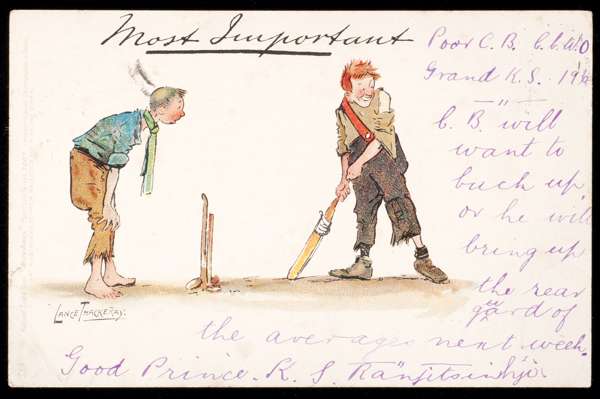 Most Important
Poor C. B. C. b. W. O
Grand K. S. 19
— " —
C. B. will
want to
buck up
or he will
bring up
the rear
guard of
the averages next week.
Good Prince. K. S. Ranjitsinhji.
LANCE THACKERAY.